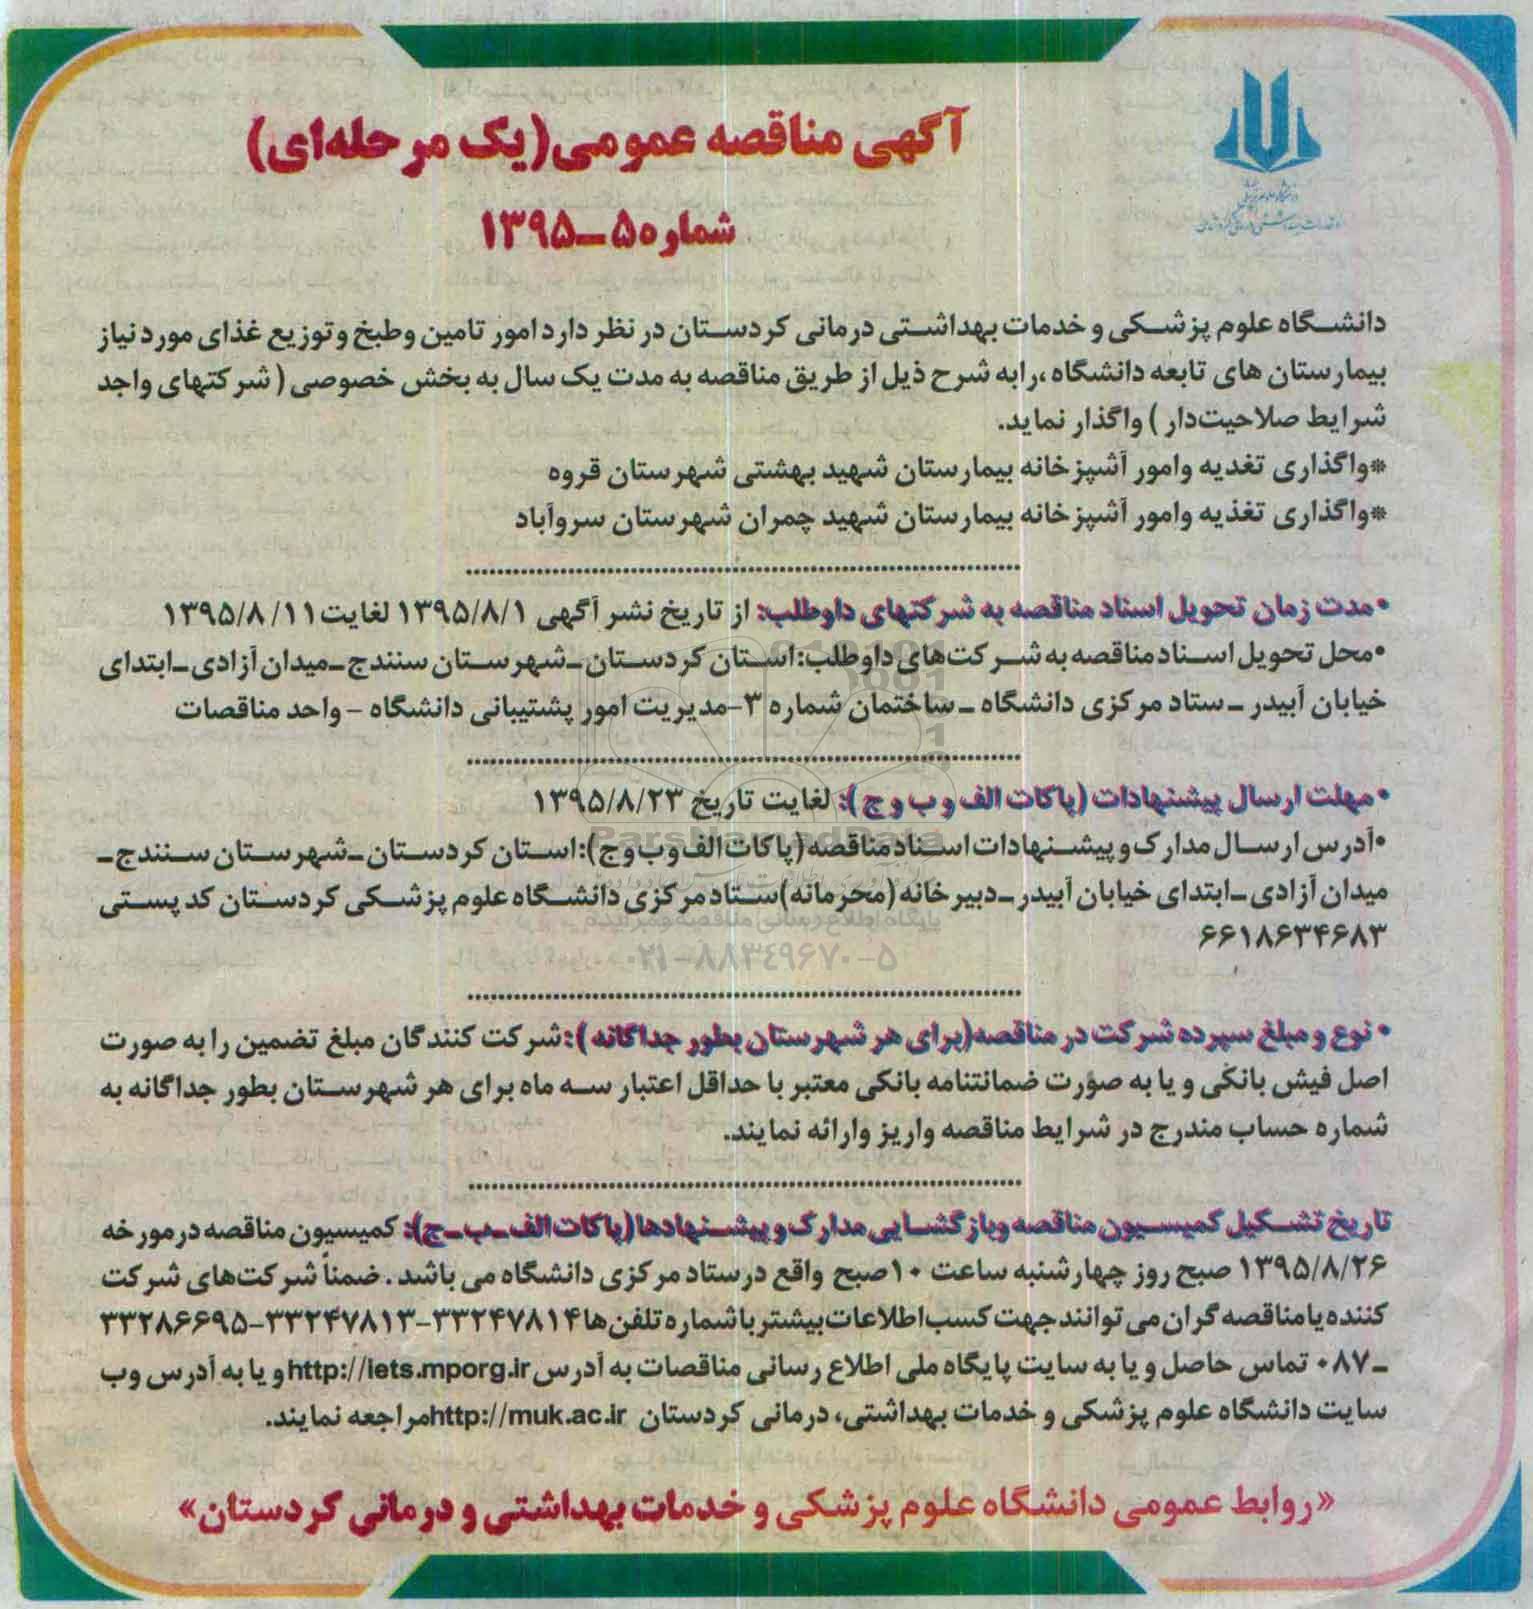 آگهی مناقصه عمومی(یک مرحله‌ای)
شماره ۵ـ۱۳۹۵
دانشگاه علوم پزشکی و خدمات بهداشتی درمانی کردستان در نظر دارد امور تامین وطبخ وتوزیع غذای مورد نیاز
بیمارستان های تابعه دانشگاه ،رابه شرح ذیل از طریق مناقصه به مدت یک سال به بخش خصوصی ( شرکتهای واجد
شرایط صلاحیت‌دار ) واگذار نماید.
*واگذاری تغدیه وامور آشپزخانه بیمارستان شهید بهشتی شهرستان قروه
*واگذاری تغذیه وامور آشپزخانه بیمارستان شهید چمران شهرستان سروآباد
•مدت زمان تحویل اسناد مناقصه به شرکتهای داوطلب: از تاریخ نشر آگهی ۱۳۹۵/۸/۱ لغایت۱۳۹۵/۸/۱۱
•محل تحویل اسناد مناقصه به شرکت‌های داوطلب:استان کردستان ـ شهرستان سنندج ـ میدان آزادی ـ ابتدای
خیابان آبیدر ـ ستاد مرکزی دانشگاه ـ ساختمان شماره ۳-مدیریت امور پشتیبانی دانشگاه - واحد مناقصات
•مهلت ارسال پیشنهادات (پاکات الف و ب و ج ): لغایت تاریخ ۱۳۹۵/۸/۲۳
•آدرس ارسال مدارک و پیشنهادات اسناد مناقصه (پاکات الف و ب و ج):استان کردستان ـ شهرستان سنندج ـ
میدان آزادی ـ ابتدای خیابان آبیدر ـ دبیرخانه (محرمانه)ستاد مرکزی دانشگاه علوم پزشکی کردستان کد پستی
۶۶۱۸۶۳۴۶۸۳
ParsNamadData
پایگاه اطلاع رسانی مناقصه و مزایده
۰۲۱-۸۸۳۴۹۶۷۰-۵
• نوع و مبلغ سپرده شرکت در مناقصه(برای هر شهرستان بطور جداگانه ):شرکت کنندگان مبلغ تضمین را به صورت
اصل فیش بانکی و یا به صورت ضمانتنامه بانکی معتبر با حداقل اعتبار سه ماه برای هر شهرستان بطور جداگانه به
شماره حساب مندرج در شرایط مناقصه واریز وارائه نمایند.
تاریخ تشکیل کمیسیون مناقصه وبازگشایی مدارک و پیشنهادها (پاکات الف ـ ب ـ ج): کمیسیون مناقصه در مورخه
۱۳۹۵/۸/۲۶ صبح روز چهارشنبه ساعت ۱۰صبح واقع درستاد مرکزی دانشگاه می باشد . ضمناً شرکت‌های شرکت
کننده یا مناقصه گران می توانند جهت کسب اطلاعات بیشتر با شماره تلفن ها ۳۳۲۴۷۸۱۴-۳۳۲۴۷۸۱۳-۳۳۲۸۶۶۹۵
ـ ۰۸۷ تماس حاصل و یا به سایت پایگاه ملی اطلاع رسانی مناقصات به آدرس http://iets.mporg.ir و یا به آدرس وب
سایت دانشگاه علوم پزشکی و خدمات بهداشتی، درمانی کردستان http://muk.ac.ir مراجعه نمایند.
«روابط عمومی دانشگاه علوم پزشکی و خدمات بهداشتی و درمانی کردستان»